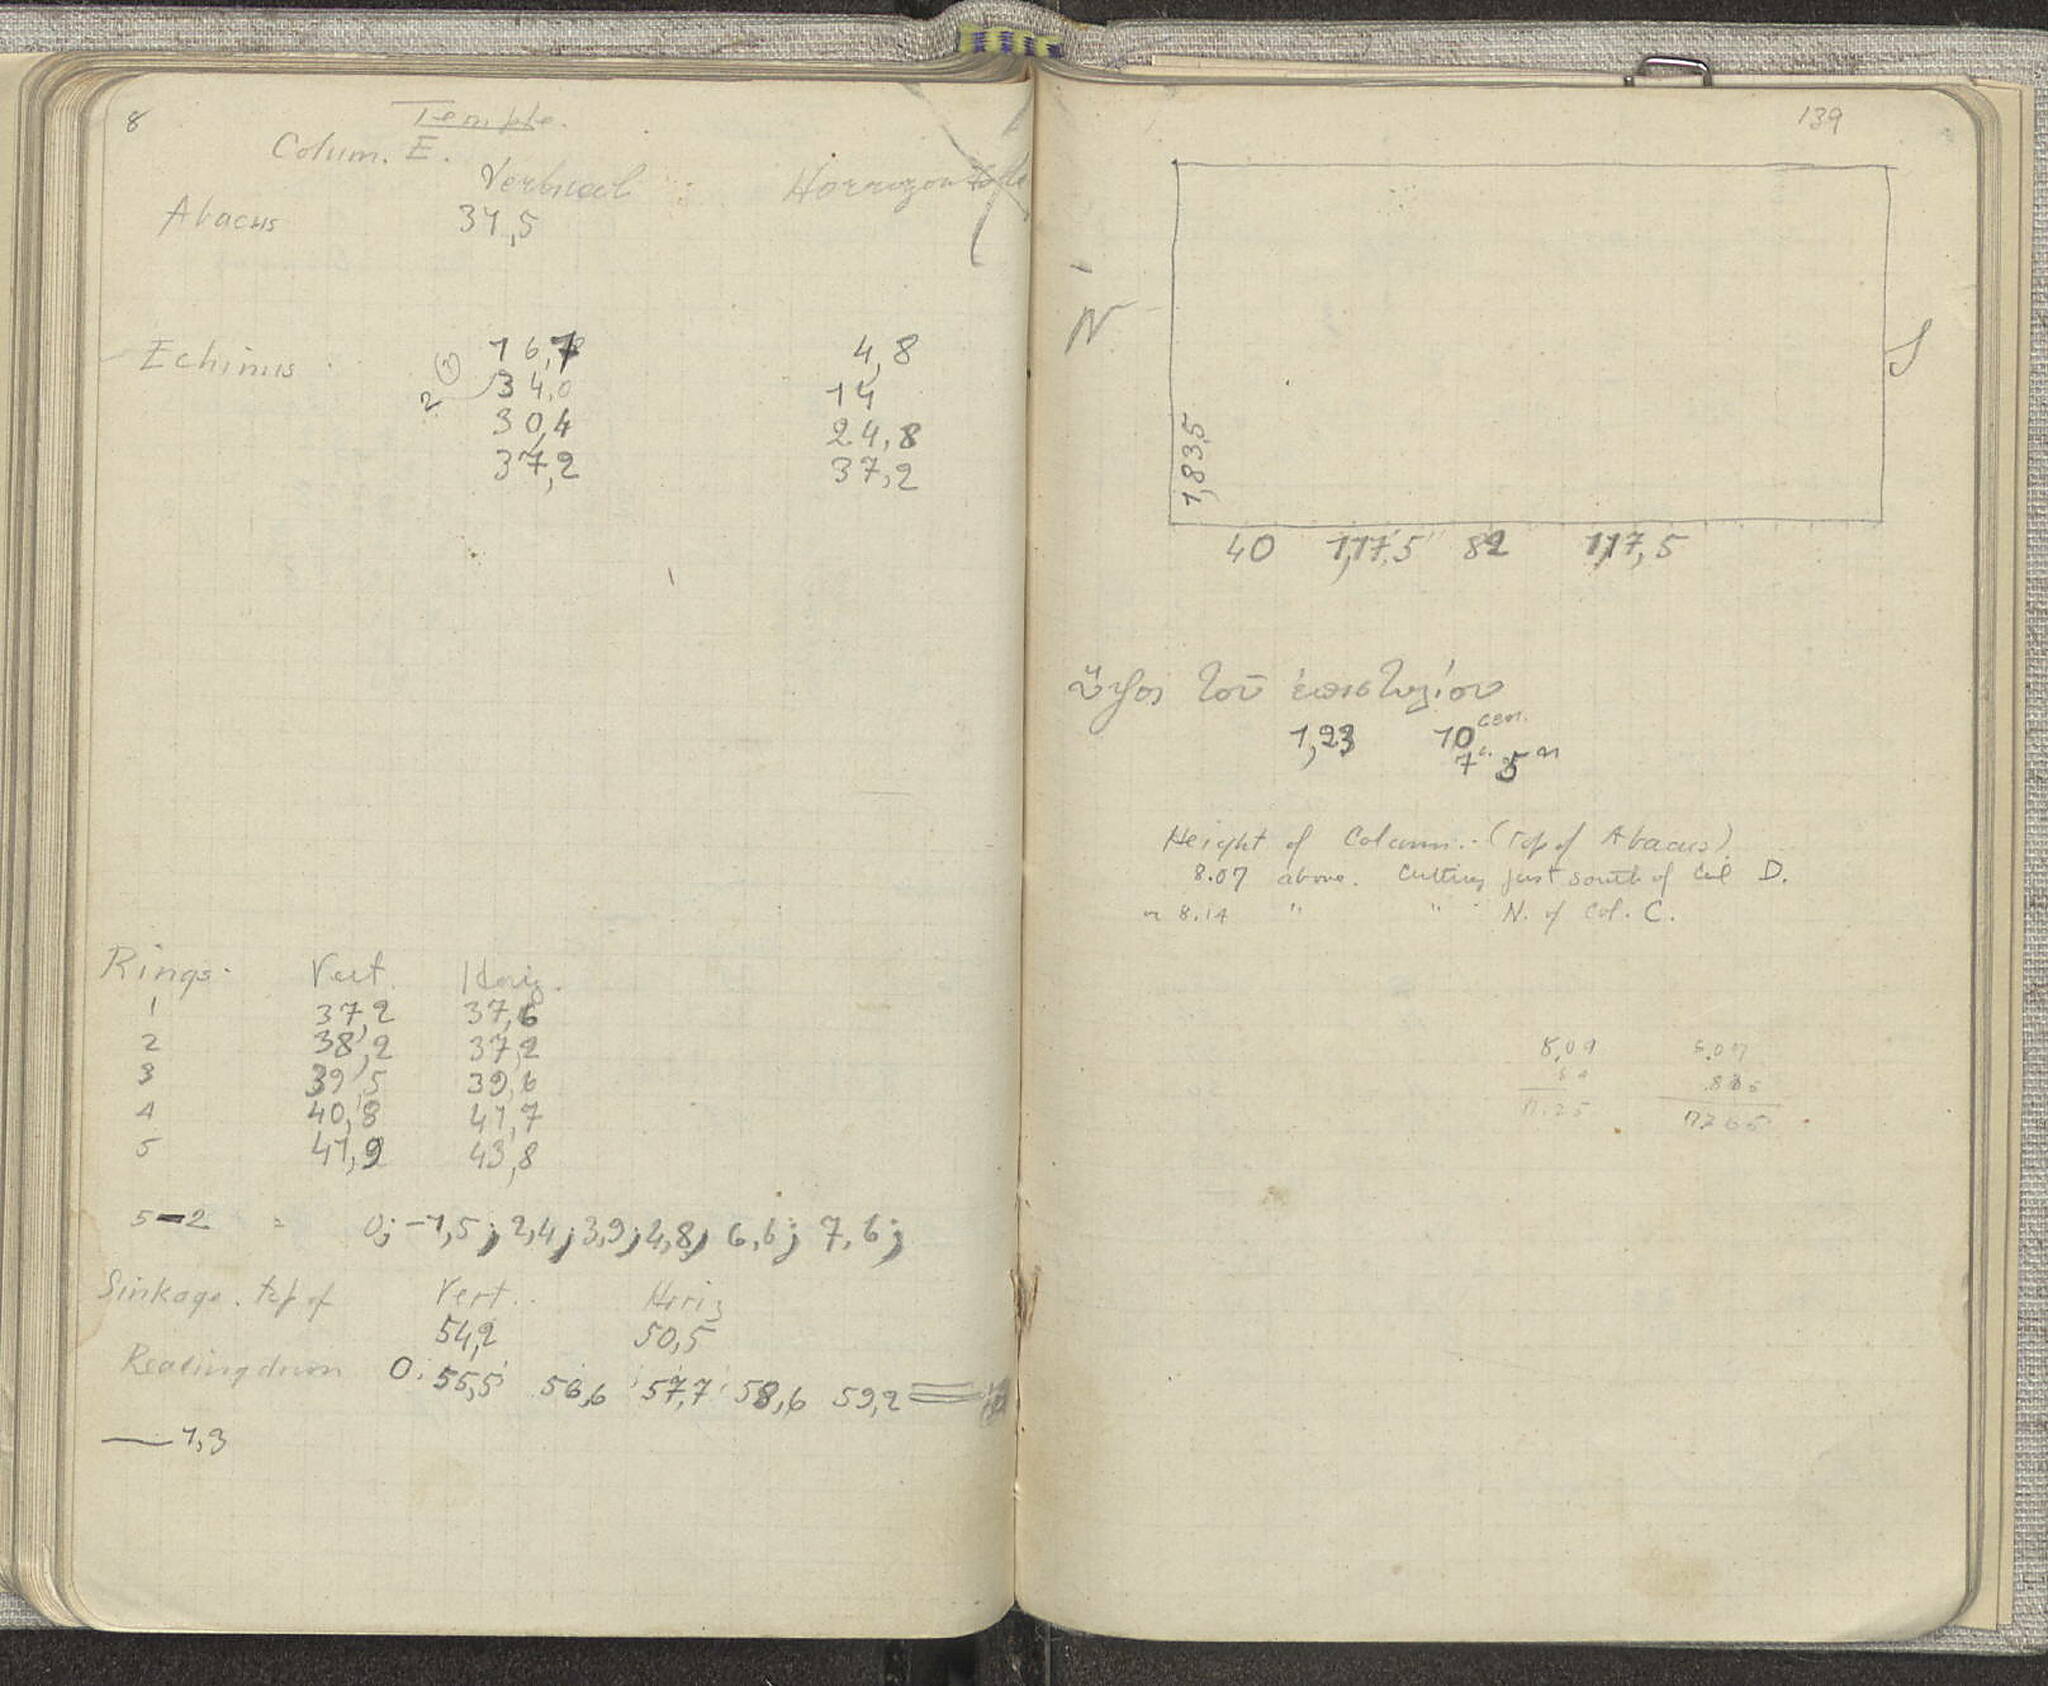 8
Temple.
Colum. E.
Vertical Horrizontalle
Abacus 31,5
Echinus 16,7 4,8
2 34,0 14
30,4 24,8
37,2 37,2
Rings. Vert. Horiz.
1 37,2 37,6
2 38,2 37,2
3 39,5 39,6
4 40,8 41,7
5 41,9 43,8
5-2 = 0; -1,5; 2,4; 3,9; 4,8; 6,6; 7,6;
Sinkage. top of Vert.. Horiz
54,2 50,5
Realing drum 0. 55,5 56,6 57,7 58,6 59,2
— 1,3
139
N
S
1,835
40 1,17,5 82 1,17,5
ὕψος τοῦ ἐπιστυλίου
1,23 10 cen.
7 c. 5 m
Height of Column.. (Top of Abacus)
8.07 above. Cutting just south of Col D.
or 8.14 " " N. of Col. C.
8,09